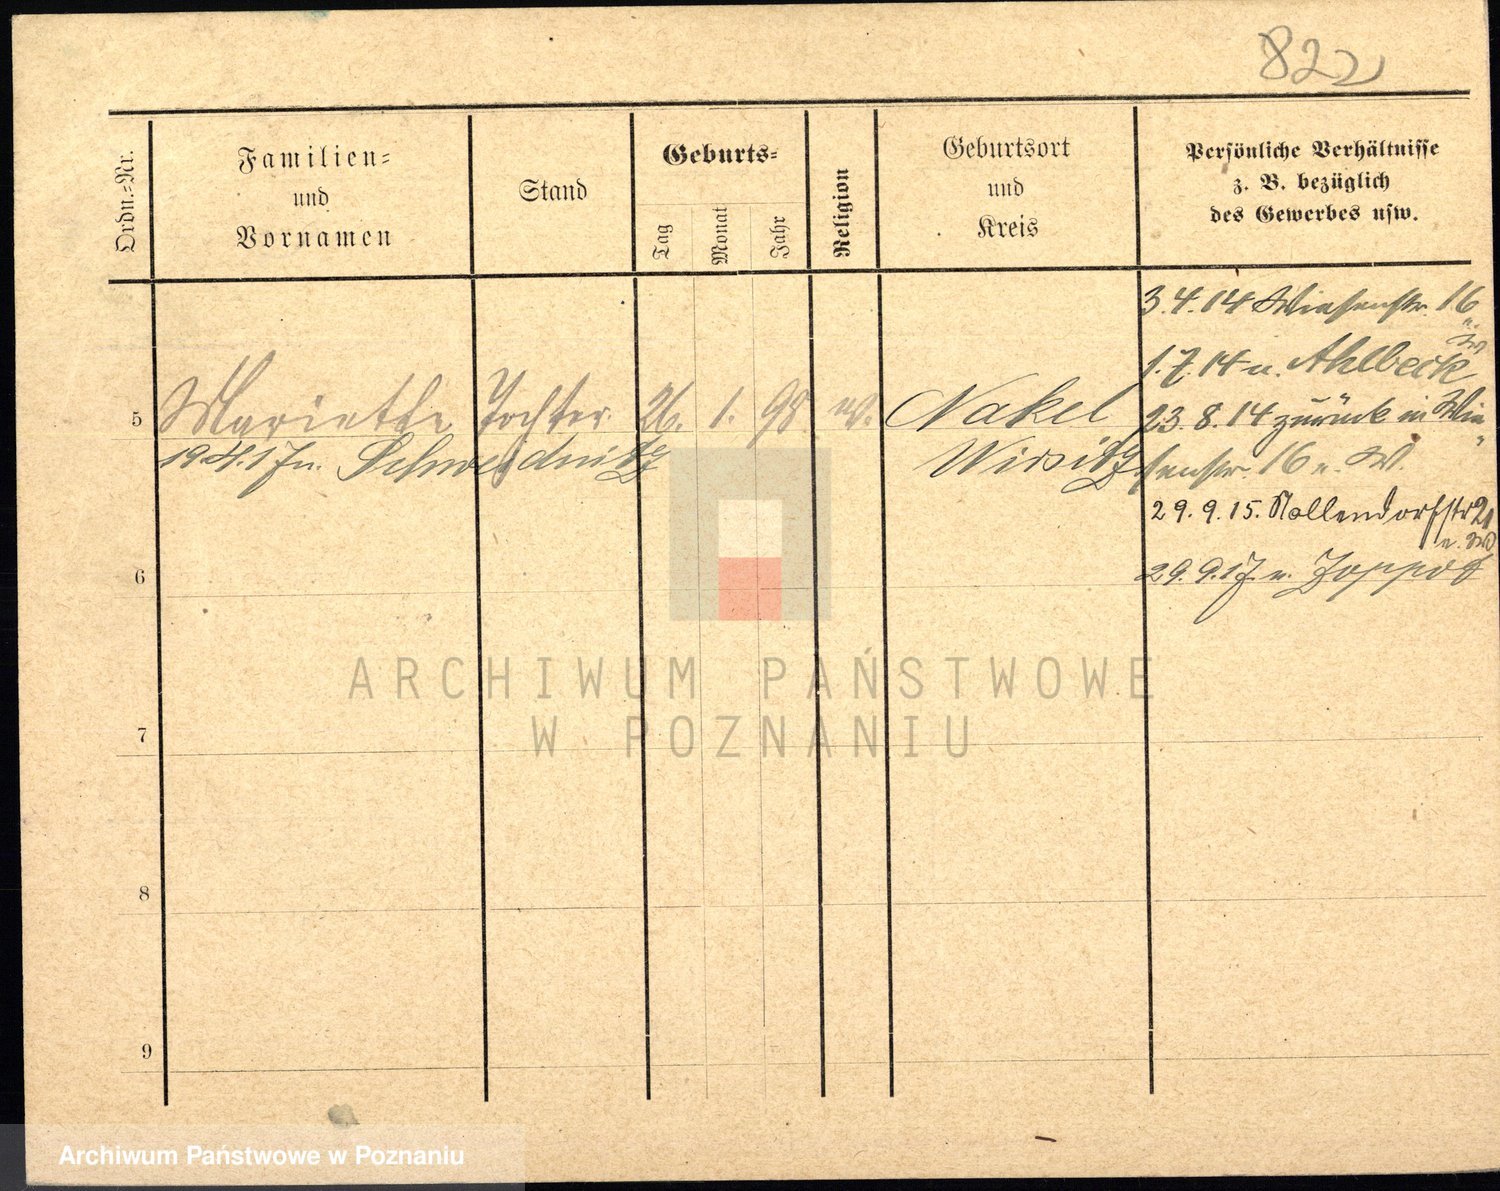 822
Ordn.=Nr.
Familien=
und
Vornamen
Stand
Geburts=
Tag
Monat
Jahr
Religion
Geburtsort
und
Kreis
Persönliche Verhältnisse
z. B. bezüglich
des Gewerbes usw.
3.4.14 Wiesenstr. 16
u. W
1.7.14 n. Ahlbeck
5 Mariette Tochter 26. 1. 98 Nakel
23.8.14 zurück in Wie
19.4.17 n. Schweidnitz Wirsitz
senstr. 16 u. W.
29.9.15. Nollendorfstr 21
u. W
29.9.17. n. Zoppot
6
7
8
9
ARCHIWUM PAŃSTWOWE
W POZNANIU
Archiwum Państwowe w Poznaniu